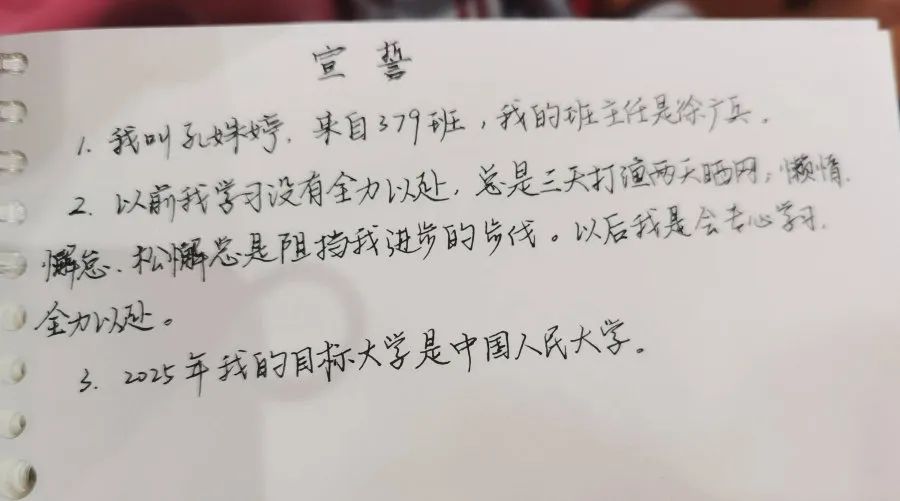 宣誓
1. 我叫孔姝婷，来自379班，我的班主任是徐广兵。
2. 以前我学习没有全力以处，总是三天打渔两天晒网，懒惰、
懈怠、松懈总是阻挡我进步的步伐。以后我是会专心学习、
全力以处。
3. 2025年我的目标大学是中国人民大学。